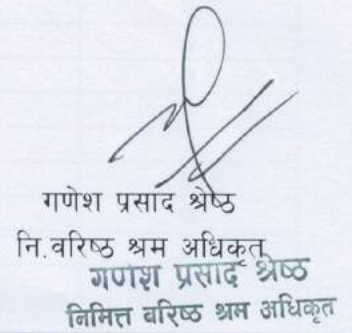 गणेश प्रसाद श्रेष्ठ
नि.वरिष्ठ श्रम अधिकृत
गणेश प्रसाद श्रेष्ठ
निमित्त वरिष्ठ श्रम अधिकृत